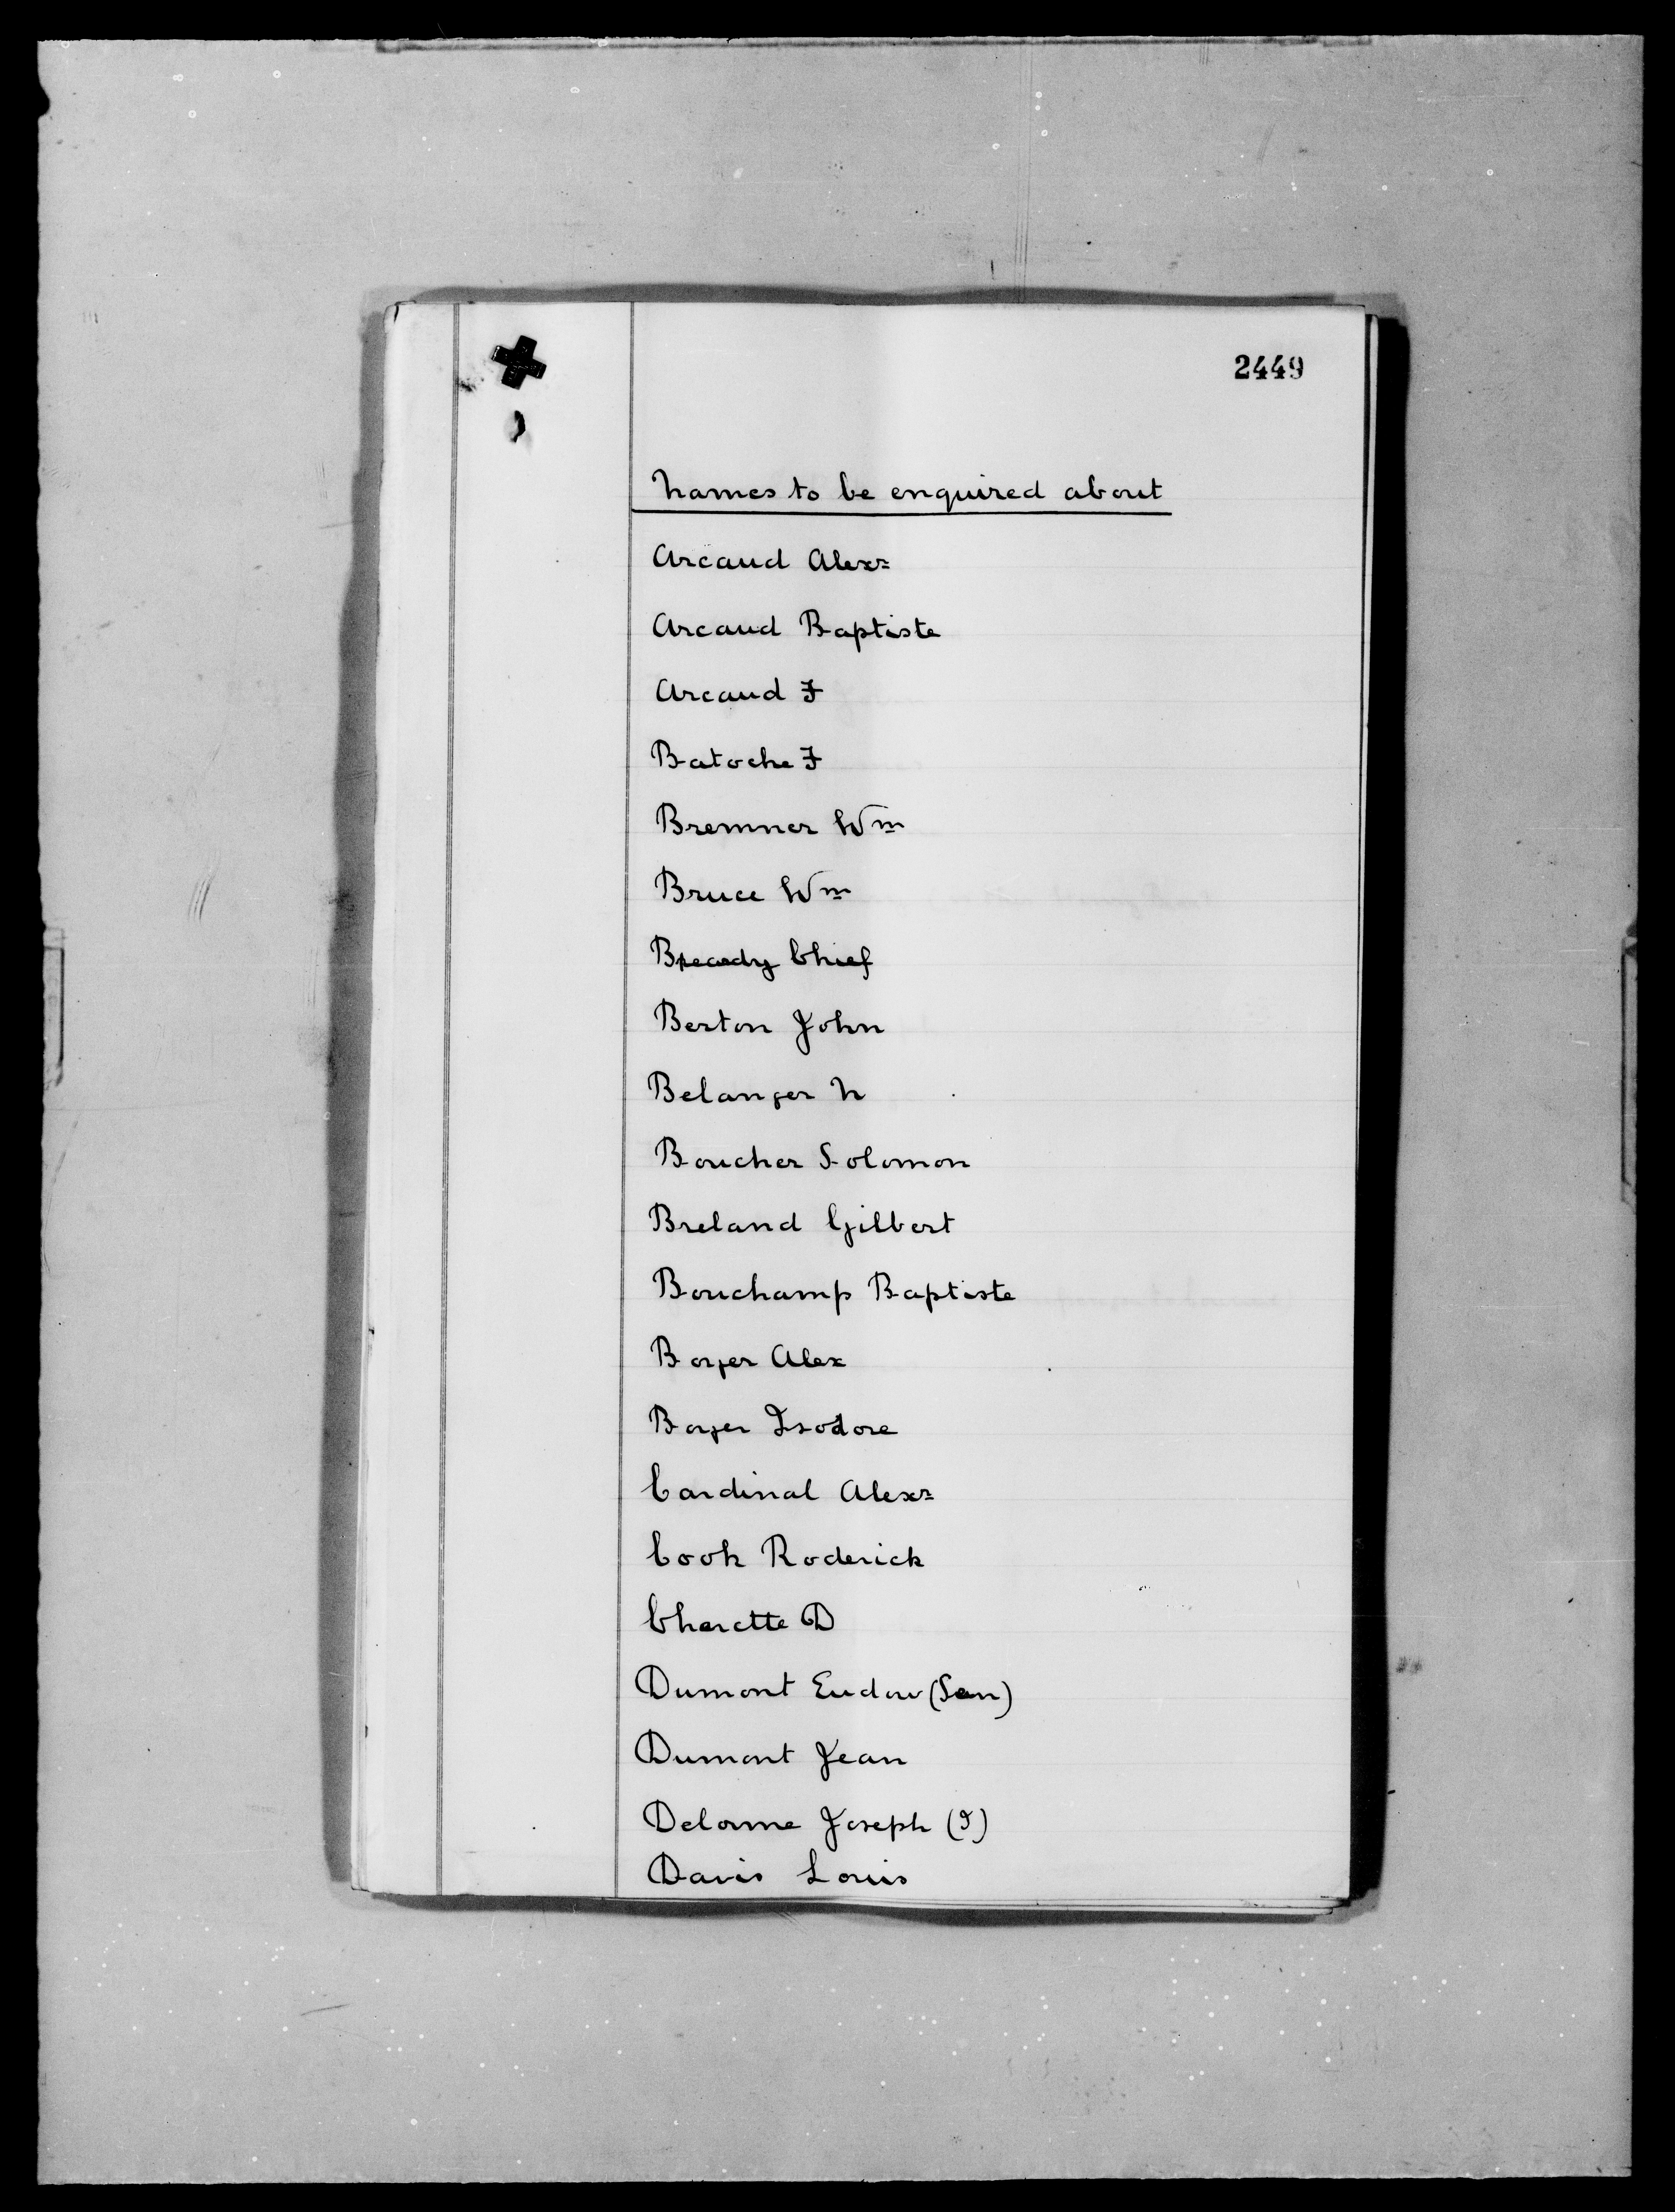 2449
Names to be enquired about
Arcaud Alexr
Arcaud Baptiste
Arcaud F
Batoche F
Bremner Wm
Bruce Wm
Chief
Berton John
Belanger N
Boucher Solomon
Breland Gilbert
Bouchamp Baptiste
Boyer Alex
Boyer Isodore
Cardinal Alexr
Cook Roderick
Charette D
Dumont (Sen)
Dumont Jean
Delorme Joseph
Davis Louis